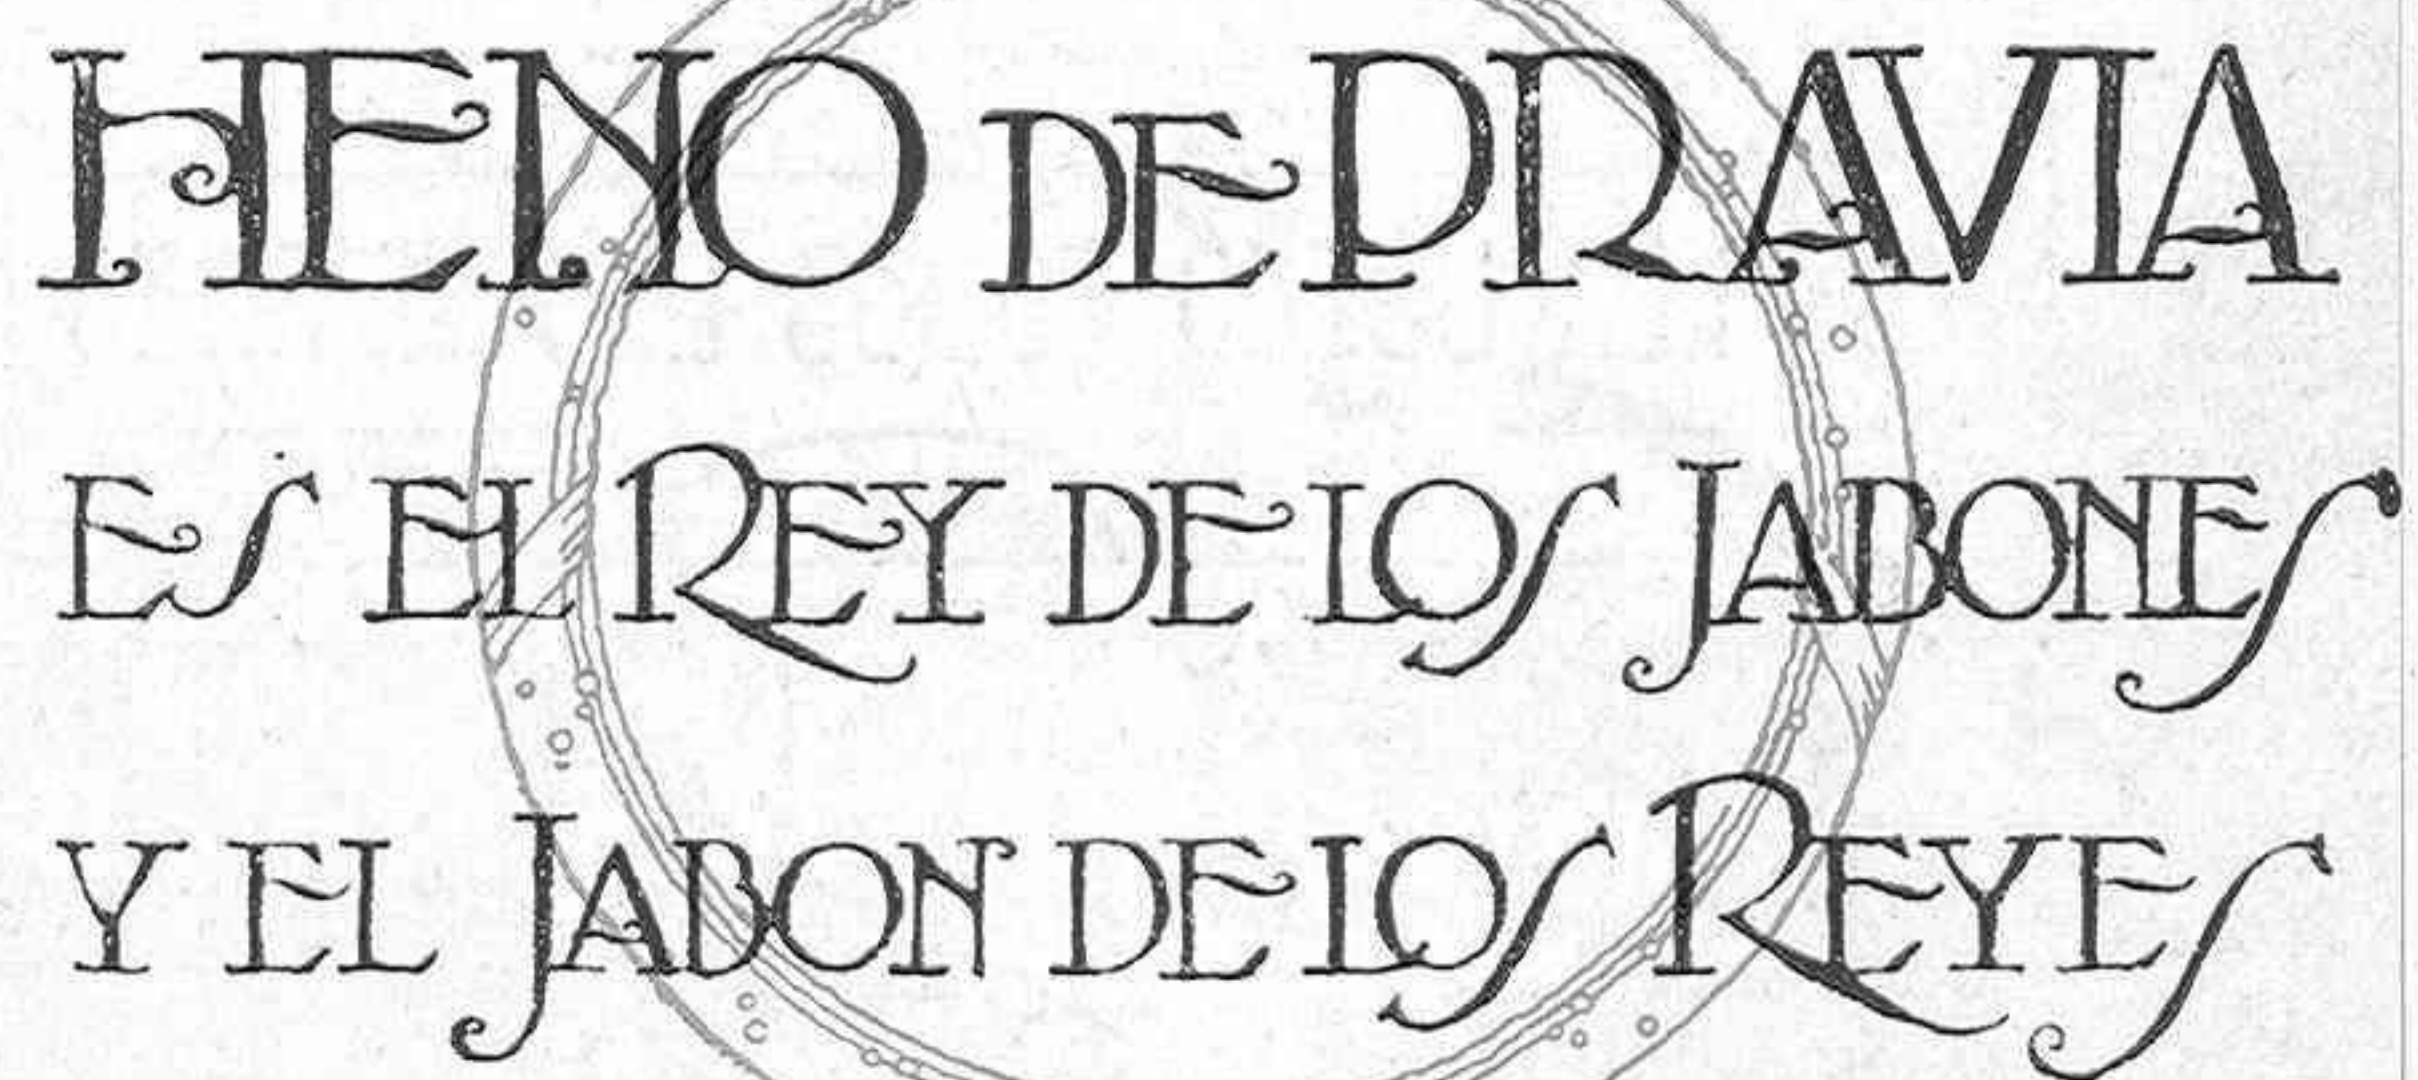 HENO DE PRAVIA
ES EL REY DE LOS JABONES
Y EL JABON DE LOS REYES